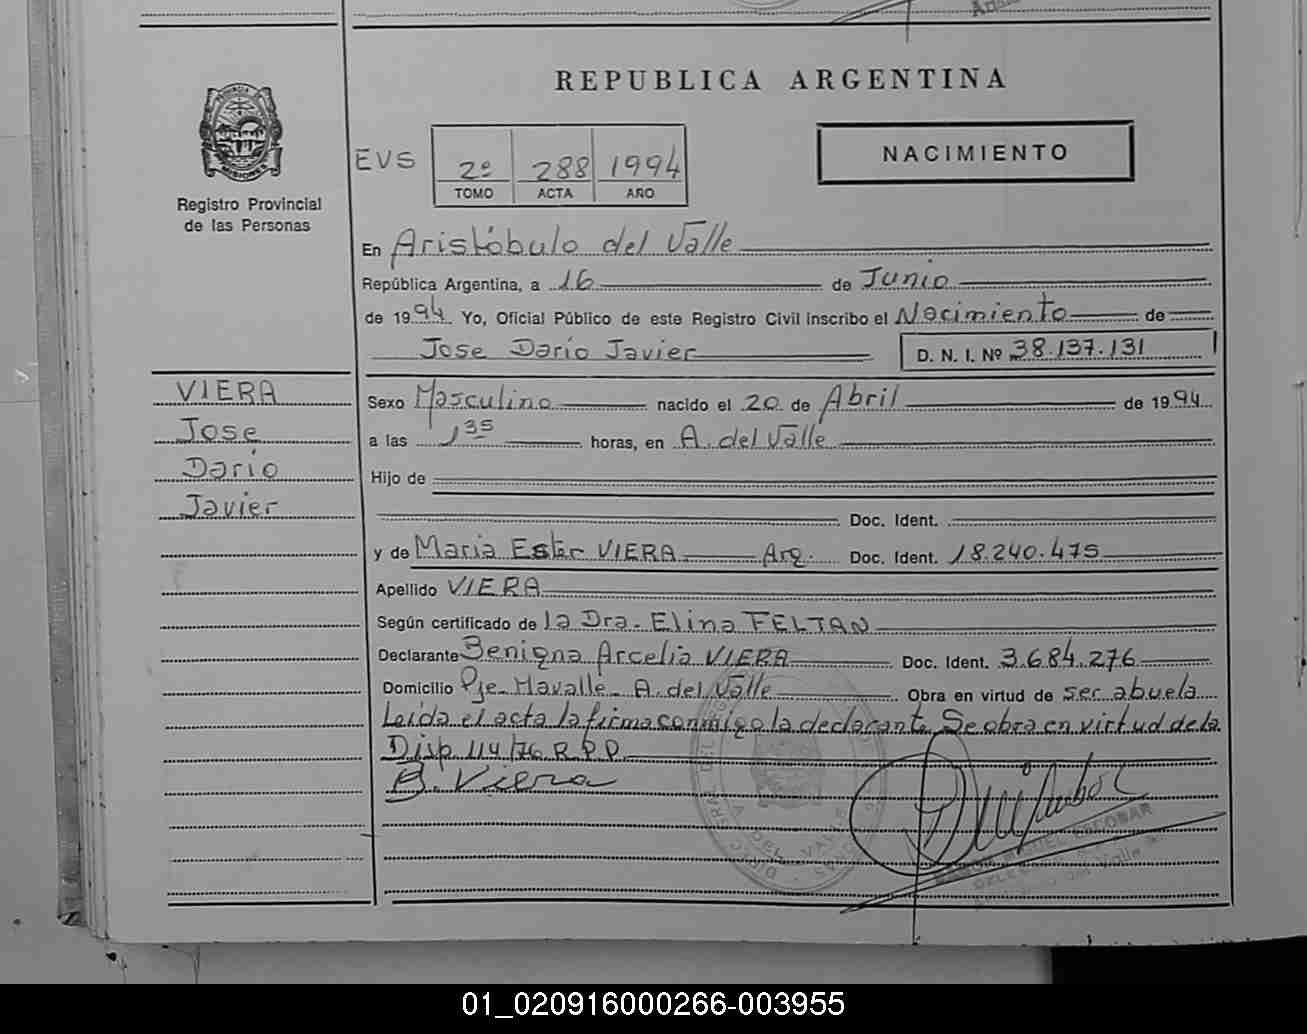 REPUBLICA ARGENTINA
PROVINCIA DE
MISIONES
Registro Provincial
de las Personas
EVS
2º 288 1994
TOMO ACTA AÑO
NACIMIENTO
En Aristóbulo del Valle
República Argentina, a 16 de Junio
de 1994 Yo, Oficial Público de este Registro Civil inscribo el Nacimiento de
Jose Dario Javier D. N. I. Nº 38.137.131
VIERA
Jose
Dario
Javier
Sexo Masculino nacido el 20 de Abril de 1994
a las 1 35 horas, en A. del Valle
Hijo de
Doc. Ident.
y de Maria Ester VIERA Arg. Doc. Ident. 18.240.475
Apellido VIERA
Según certificado de la Dra. Elina FELTAN
Declarante Benigna Arcelia VIERA Doc. Ident. 3.684.276
Domicilio Pje. Mavalle - A. del Valle Obra en virtud de ser abuela
Leida el acta la firma conmigo la declarante. Se obra en virtud de la
Disp. 114/76 R.P.P.
B. Viera
MIGUEL ESCOBAR
01_020916000266-003955